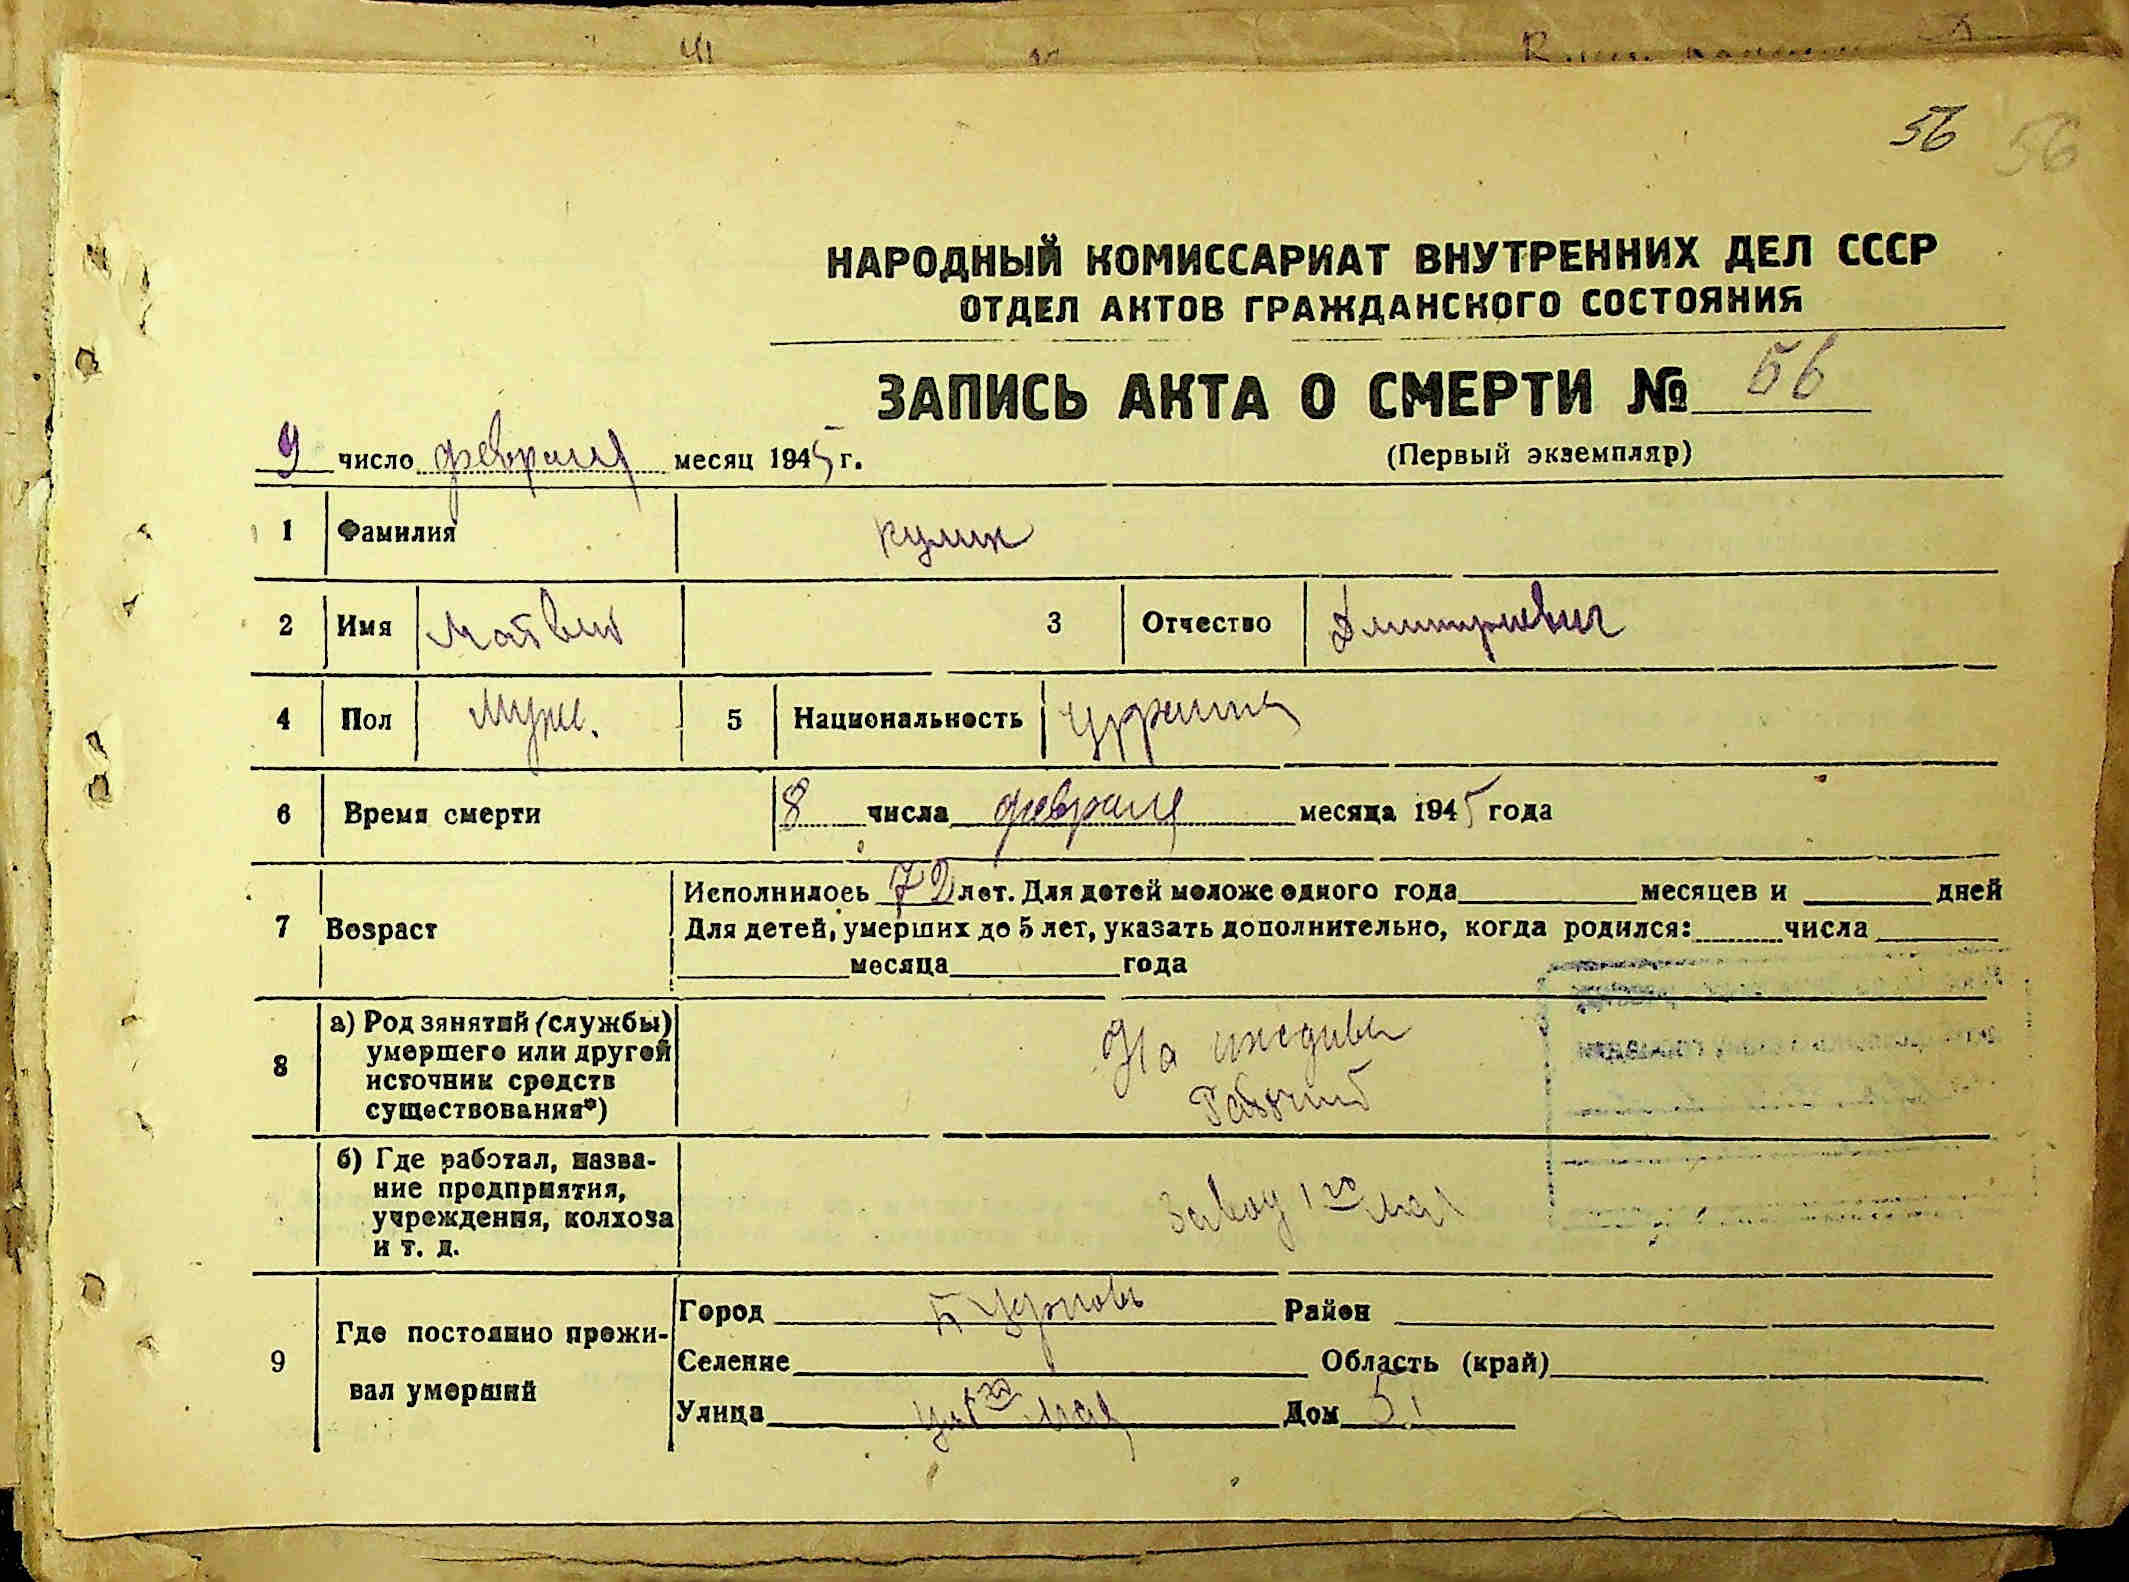 56 56
НАРОДНЫЙ КОМИССАРИАТ ВНУТРЕННИХ ДЕЛ СССР
ОТДЕЛ АКТОВ ГРАЖДАНСКОГО СОСТОЯНИЯ
ЗАПИСЬ АКТА О СМЕРТИ № 56
9 число февраля месяц 1945 г.
(Первый экземпляр)
1 Фамилия Кулик
2 Имя Матвий 3 Отчество Дмитриевич
4 Пол Муж. 5 Национальность
6 Время смерти 8 числа февраля месяца 1945 года
7 Возраст
Исполнилось 72 лет. Для детей моложе одного года месяцев и дней
Для детей, умерших до 5 лет, указать дополнительно, когда родился: числа
месяца года
8 а) Род занятий (службы)
умершего или другой
источник средств
существования*)
На иждивен
Рабочий
б) Где работал, назва-
ние предприятия,
учреждения, колхоза
и т. д.
Завод 1го мая
9 Где постоянно прожи-
вал умерший
Город Район
Селение Область (край)
Улица мая Дом 5